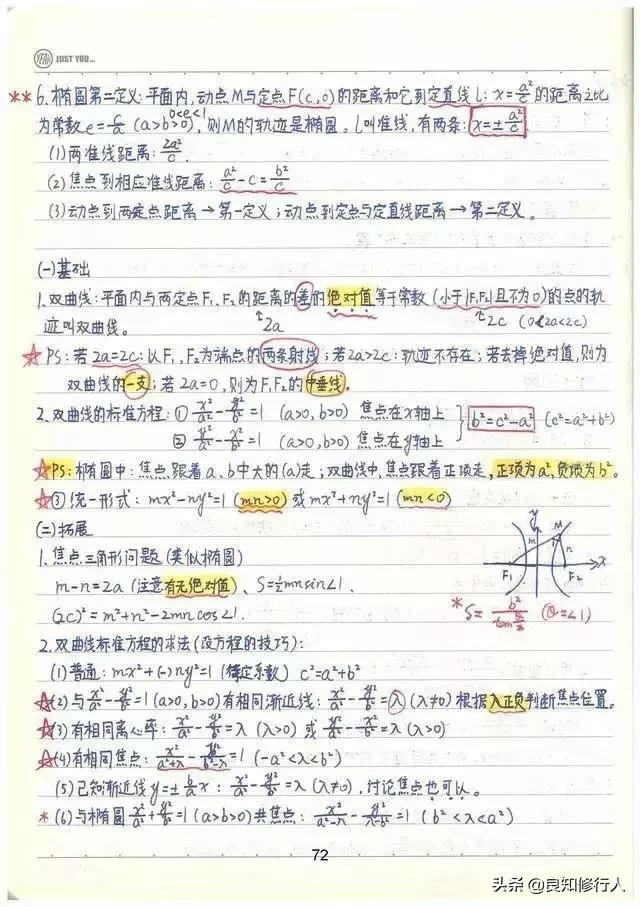 YEAH JUST YOU...
**6.椭圆第二定义:平面内,动点M与定点F(c,0)的距离和它到定直线l:x=a²/c的距离之比
为常数e=c/a (a>b>0), 0<e<1 则M的轨迹是椭圆。l叫准线,有两条:x=±a²/c
(1)两准线距离:2a²/c.
(2)焦点到相应准线距离:a²/c-c=b²/c
(3)动点到两定点距离→第一定义;动点到定点与定直线距离→第二定义。
(一)基础
1.双曲线:平面内与两定点F₁、F₂的距离的差的绝对值等于常数(小于|F₁F₂|且不为0)的点的轨
迹叫双曲线。 ↑2a ↑2c (0<2a<2c)
☆PS:若2a=2c:以F₁、F₂为端点的两条射线;若2a>2c:轨迹不存在;若去掉绝对值,则为
双曲线的一支;若2a=0,则为F₁F₂的中垂线。
2.双曲线的标准方程:① x²/a²-y²/b²=1 (a>0,b>0) 焦点在x轴上
② y²/a²-x²/b²=1 (a>0,b>0) 焦点在y轴上 } b²=c²-a² (c²=a²+b²)
☆PS:椭圆中:焦点跟着a、b中大的(a)走;双曲线中,焦点跟着正项走,正项为a²,负项为b²。
☆③统一形式:mx²-ny²=1(mn>0)或mx²+ny²=1(mn<0)
(二)拓展
1.焦点三角形问题(类似椭圆)
m-n=2a (注意有无绝对值)、S=½mnsin∠1.
(2c)²=m²+n²-2mncos∠1.
y M m 1 n F₁ F₂ x
*S=b²/tan θ/2 (θ=∠1)
2.双曲线标准方程的求法(设方程的技巧):
(1)普通:mx²+(-)ny²=1 (待定系数) c²=a²+b²
☆(2)与x²/a²-y²/b²=1(a>0,b>0)有相同渐近线:x²/a²-y²/b²=λ(λ≠0)根据λ正负判断焦点位置。
☆(3)有相同离心率:x²/a²-y²/b²=λ (λ>0) 或 y²/a²-x²/b²=λ(λ>0)
☆(4)有相同焦点:x²/a²+λ-y²/b²-λ=1 (-a²<λ<b²)
(5)已知渐近线y=±b/a x:x²/a²-y²/b²=λ(λ≠0),讨论焦点也可以。
*(6)与椭圆x²/a²+y²/b²=1(a>b>0)共焦点:x²/a²-λ-y²/λ-b²=1 (b²<λ<a²)
72
头条@良知修行人